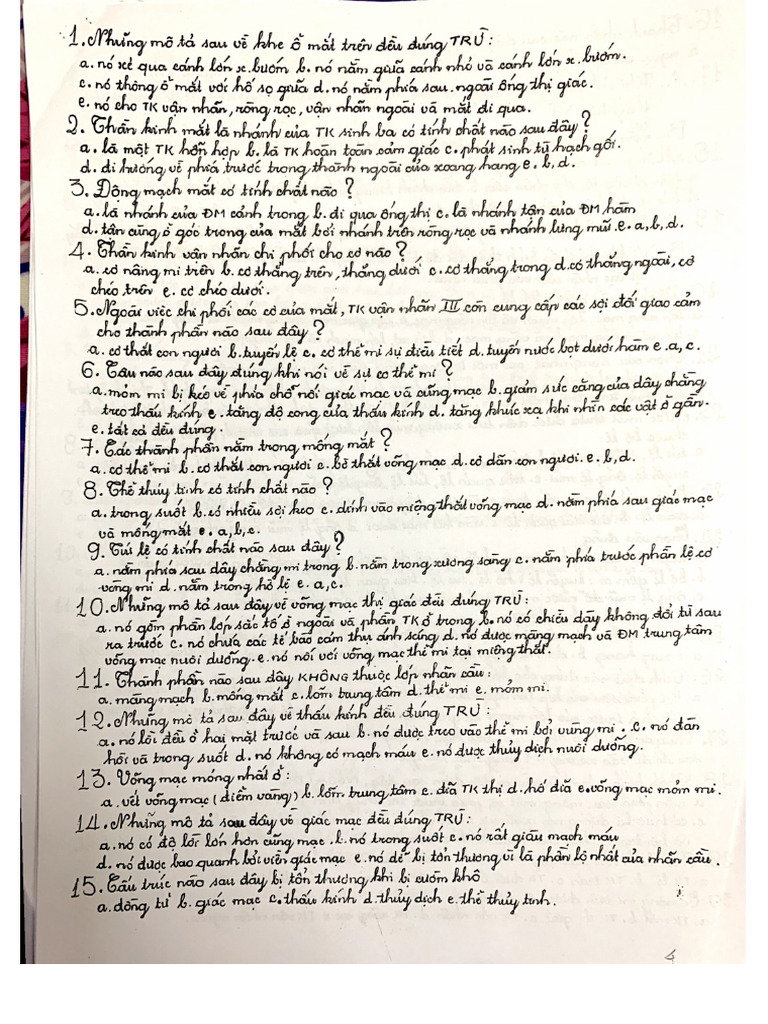 1. Những mô tả sau về khe ổ mắt trên đều đúng TRỪ:
a. nó xẻ qua cánh lớn x.bướm b. nó nằm giữa cánh nhỏ và cánh lớn x.bướm.
c. nó thông ổ mắt với hố sọ giữa d. nó nằm phía sau. ngoài ống thị giác.
e. nó cho TK vận nhãn, ròng rọc, vận nhãn ngoài và mắt đi qua.
2. Thần kinh mắt là nhánh của TK sinh ba có tính chất nào sau đây?
a. là một TK hỗn hợp b. là TK hoàn toàn cảm giác c. phát sinh từ hạch gối.
d. đi hướng về phía trước trong thành ngoài của xoang hang e. b, d.
3. Động mạch mắt có tính chất nào?
a. là nhánh của ĐM cảnh trong b. đi qua ống thị c. là nhánh tận của ĐM hàm
d. tận cùng ở góc trong của mắt bởi nhánh trên ròng rọc và nhánh lưng mũi. e. a, b, d.
4. Thần kinh vận nhãn chi phối cho cơ nào?
a. cơ nâng mi trên b. cơ thẳng trên, thẳng dưới c. cơ thẳng trong d. cơ thẳng ngoài, cơ
chéo trên e. cơ chéo dưới.
5. Ngoài việc chi phối các cơ của mắt, TK vận nhãn III còn cung cấp các sợi đối giao cảm
cho thành phần nào sau đây?
a. cơ thắt con ngươi b. tuyến lệ c. cơ thể mi sự điều tiết d. tuyến nước bọt dưới hàm e. a, c.
6. Câu nào sau đây đúng khi nói về sự co thể mi?
a. mỏm mi bị kéo về phía chỗ nối giác mạc và củng mạc b. giảm sức căng của dây chằng
treo thấu kính c. tăng độ cong của thấu kính d. tăng khúc xạ khi nhìn các vật ở gần.
e. tất cả đều đúng.
7. Các thành phần nằm trong mống mắt?
a. cơ thể mi b. cơ thắt con ngươi c. bờ thắt võng mạc d. cơ dãn con ngươi. e. b, d.
8. Thể thủy tinh có tính chất nào?
a. trong suốt b. có nhiều sợi keo c. dính vào miệng thắt võng mạc d. nằm phía sau giác mạc
và mống mắt e. a, b, c.
9. Túi lệ có tính chất nào sau đây?
a. nằm phía sau dây chằng mi trong b. nằm trong xương sàng c. nằm phía trước phần lệ cơ
vòng mi d. nằm trong hố lệ e. a, c.
10. Những mô tả sau đây về võng mạc thị giác đều đúng TRỪ:
a. nó gồm phần lớp sắc tố ở ngoài và phần TK ở trong b. nó có chiều dày không đổi từ sau
ra trước c. nó chứa các tế bào cảm thụ ánh sáng d. nó được màng mạch và ĐM trung tâm
võng mạc nuôi dưỡng. e. nó nối với võng mạc thể mi tại miệng thắt.
11. Thành phần nào sau đây KHÔNG thuộc lớp nhãn cầu:
a. màng mạch b. mống mắt c. lõm trung tâm d. thể mi e. mỏm mi.
12. Những mô tả sau đây về thấu kính đều đúng TRỪ:
a. nó lồi đều ở hai mặt trước và sau b. nó được treo vào thể mi bởi vùng mi. c. nó đàn
hồi và trong suốt d. nó không có mạch máu e. nó được thủy dịch nuôi dưỡng.
13. Võng mạc mỏng nhất ở:
a. vết võng mạc (điểm vàng) b. lõm trung tâm c. đĩa TK thị d. hố đĩa e. võng mạc mỏm mi.
14. Những mô tả sau đây về giác mạc đều đúng TRỪ:
a. nó có độ lồi lớn hơn củng mạc b. nó trong suốt c. nó rất giàu mạch máu
d. nó được bao quanh bởi viền giác mạc e. nó dễ bị tổn thương vì là phần lộ nhất của nhãn cầu.
15. Cấu trúc nào sau đây bị tổn thương khi bị cườm khô
a. đồng tử b. giác mạc c. thấu kính d. thủy dịch e. thể thủy tinh.
4